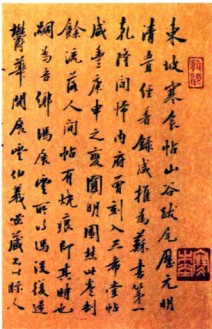 東坡寒食帖山谷跋尾歷元明
清疊經著錄咸推為蘇書第一
乾隆間歸內府曾刻入三希堂帖
咸豐庚申之變圓明園焚此卷劫
餘流落人間帖有燒痕即其時也
嗣為吾鄉馮展雲所得馮沒後
鬱華閣展雲伯羲密藏不以眎人